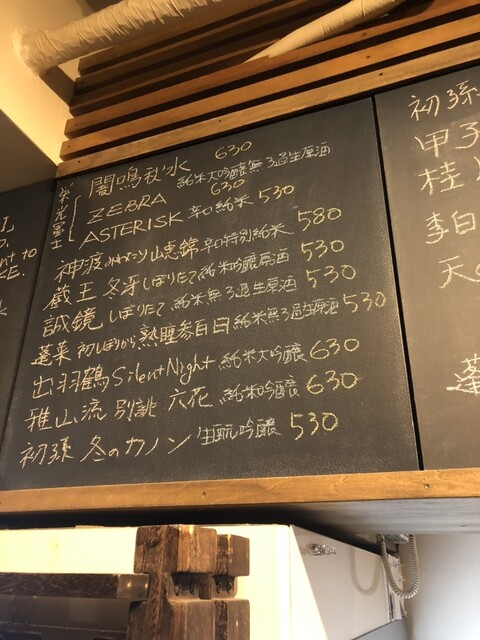 栄光冨士
闇鳴秋水 630
純米大吟醸無ろ過生原酒
ZEBRA 630
ASTERISK 辛口純米 530
神渡 みわたり 山恵錦 辛口特別純米 580
蔵王 冬牙 しぼりたて 純米吟醸原酒 530
誠鏡 しぼりたて 純米無ろ過生原酒 530
蓬莱 初しぼりから熟睡参百日 純米無ろ過生原酒 530
出羽鶴 Silent Night 純米大吟醸 630
雅山流 別誂 六花 純米吟醸 630
初孫 冬のカノン 生酛吟醸 530
初孫
甲子
桂
李白
天の
蓬